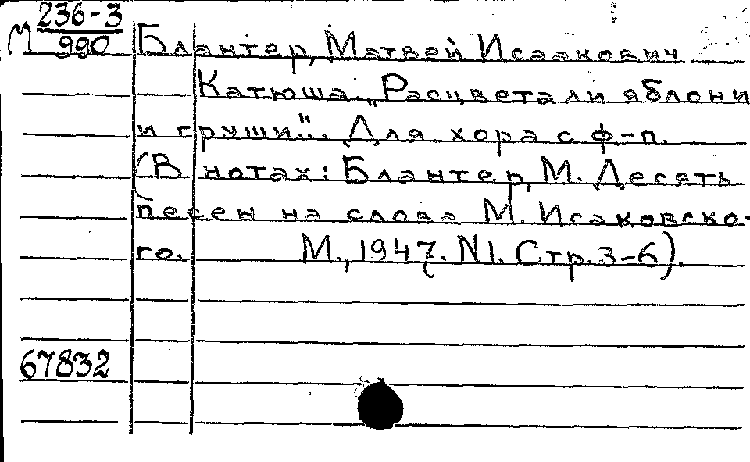 М 236-3
990
Блантер, Матвей Исаакович
Катюша. „Расцветали яблони
и груши". Для хора с ф-п.
(В нотах: Блантер, М. Десять
песен на слова М. Исаковско-
го. М., 1947. N1. Стр. 3-6).
67832